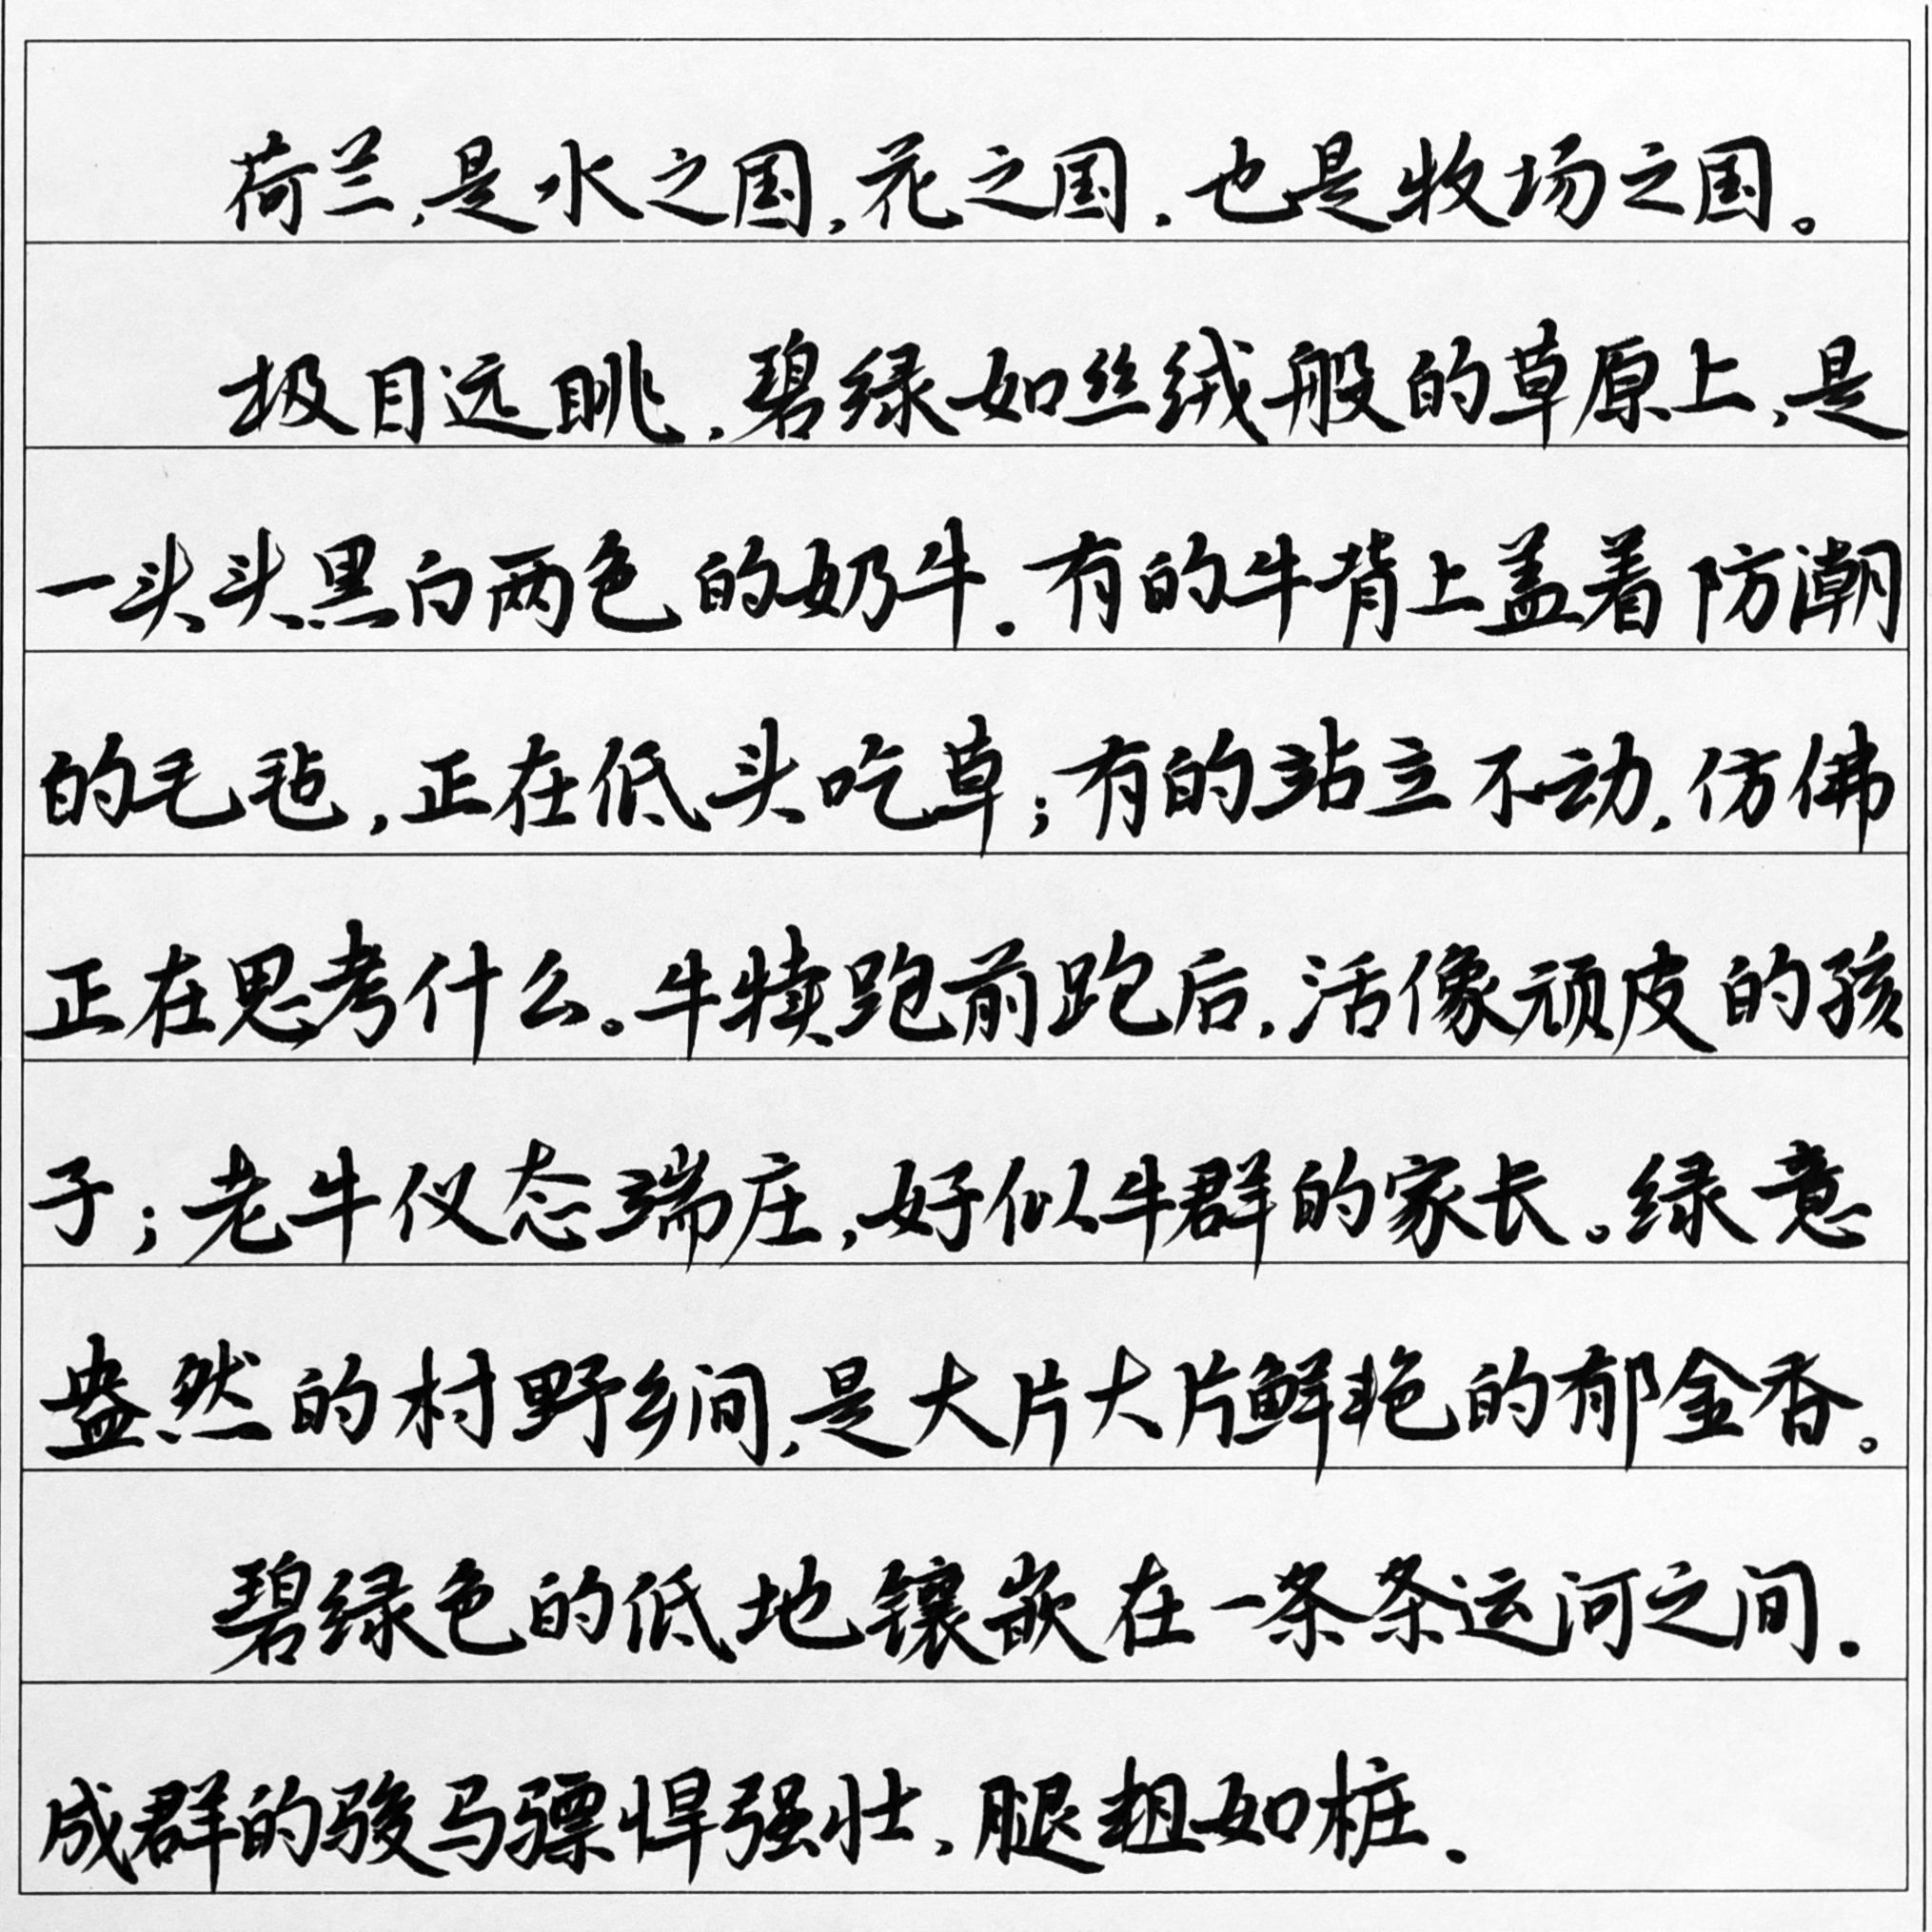 荷兰,是水之国,花之国,也是牧场之国。
极目远眺,碧绿如丝绒般的草原上,是
一头头黑白两色的奶牛.有的牛背上盖着防潮
的毛毡,正在低头吃草;有的站立不动,仿佛
正在思考什么。牛犊跑前跑后,活像顽皮的孩
子;老牛仪态端庄,好似牛群的家长。绿意
盎然的村野乡间,是大片大片鲜艳的郁金香。
碧绿色的低地镶嵌在一条条运河之间.
成群的骏马骠悍强壮,腿粗如桩.